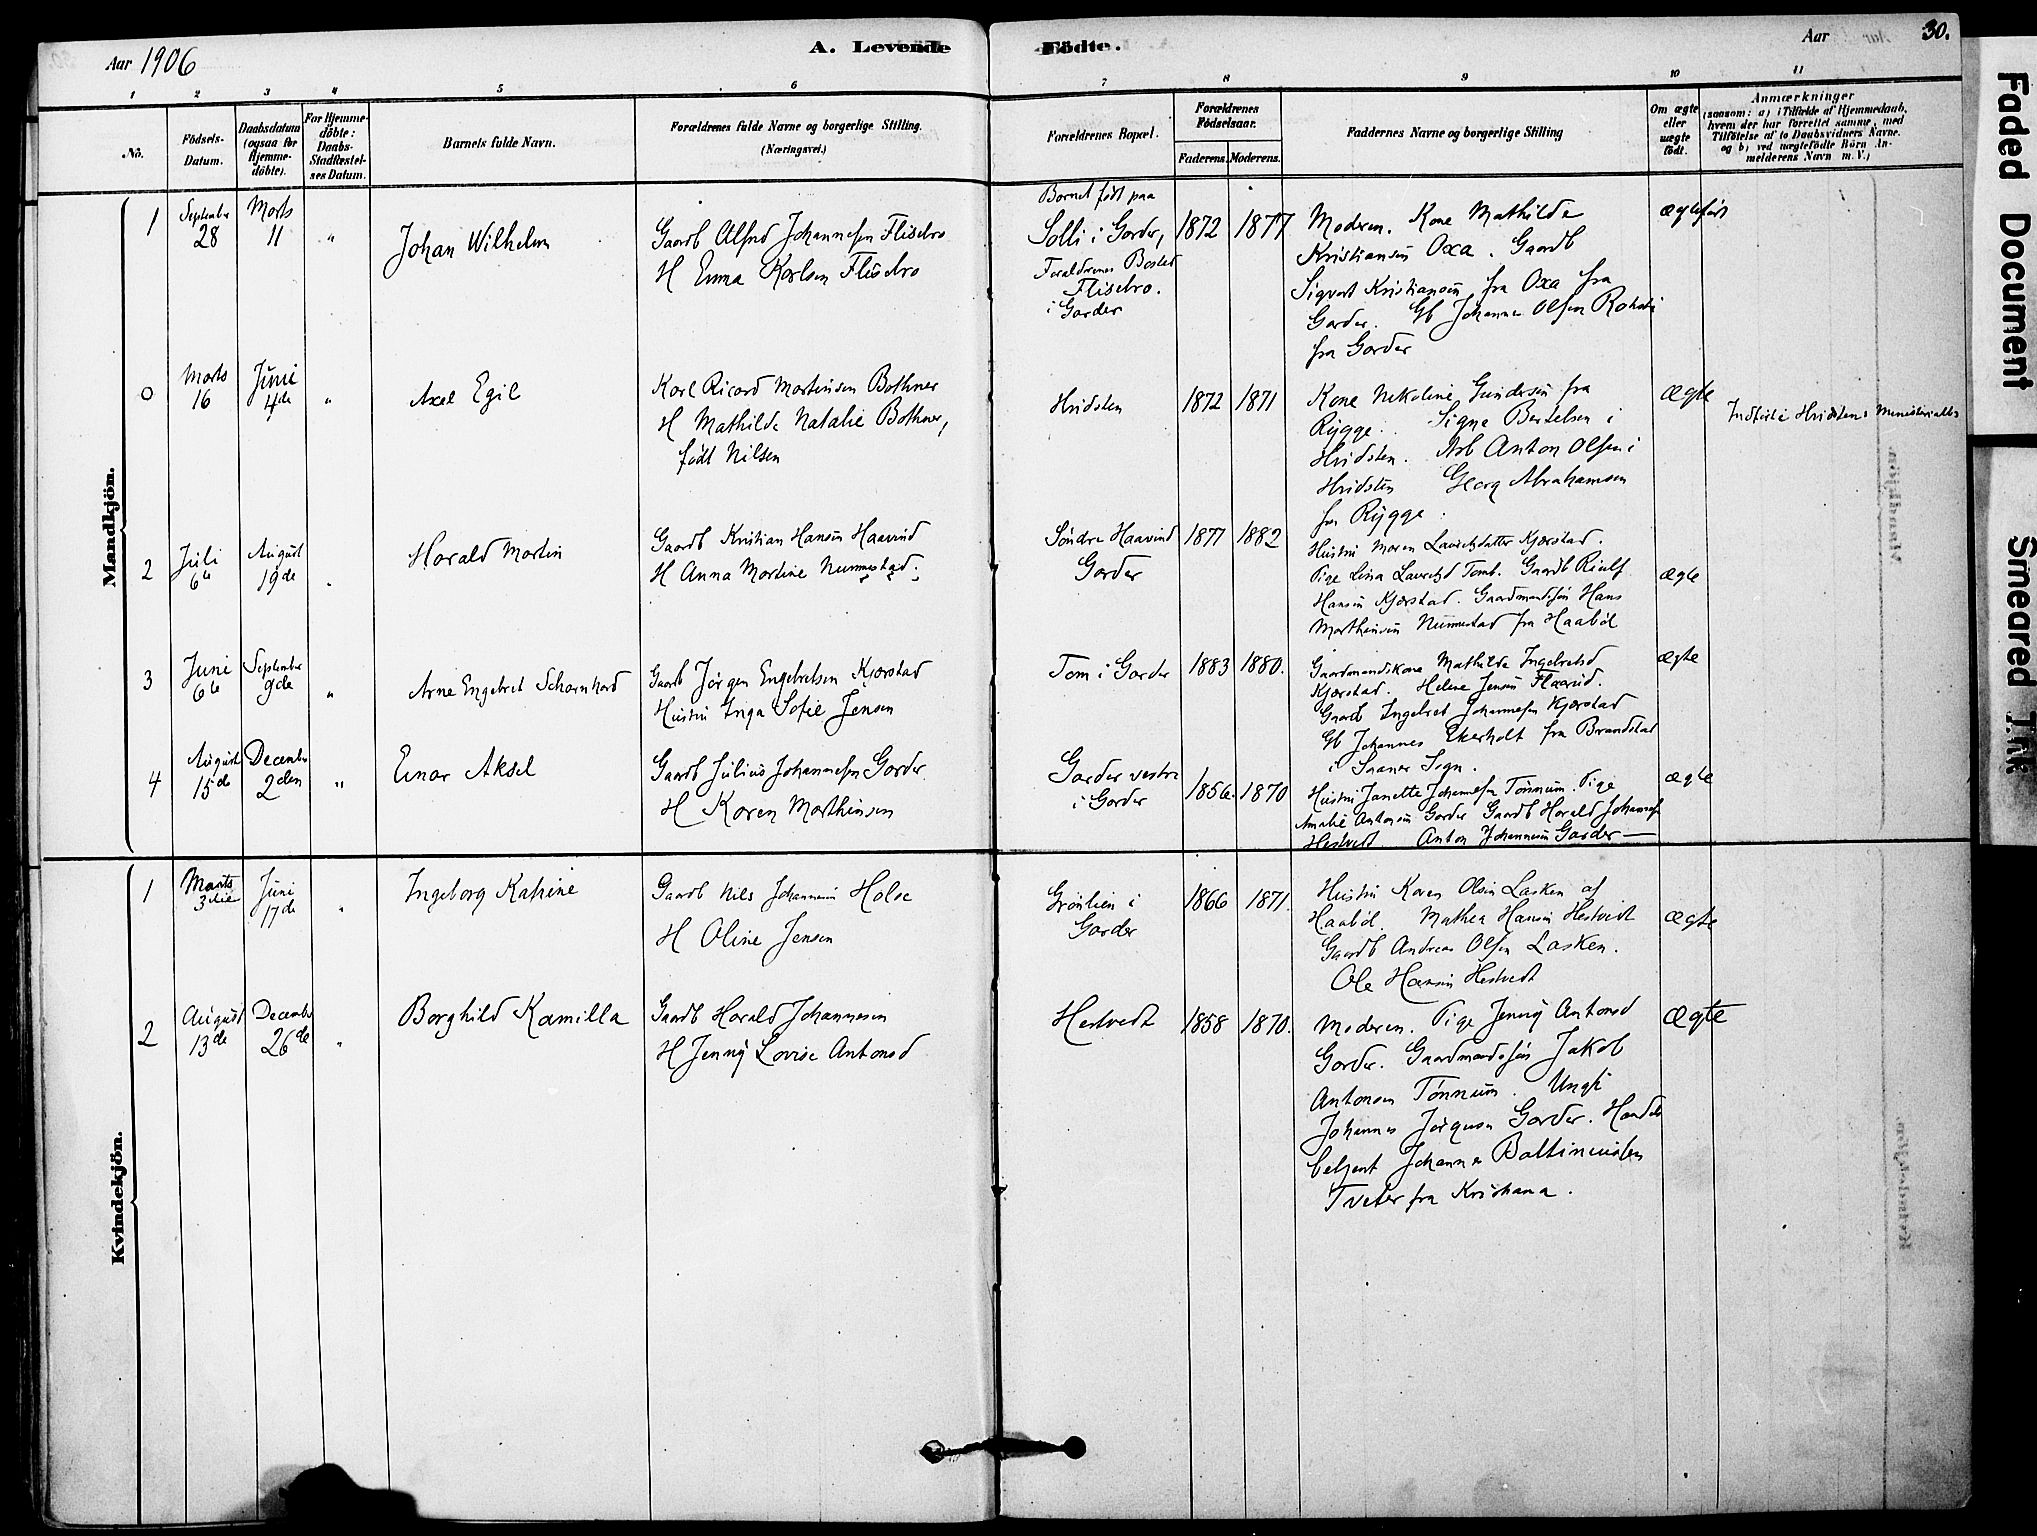 Aar 1906
A. Levende
Födte.
Aar
30.
1 2 3 4 5 6 7 8 9 10 11
No.
Födsels-
Datum.
Daabsdatum
(ogsaa for
Hjemme-
döbte).
For Hjemme-
döbte:
Daabs-
Stadfæstel-
ses Datum.
Barnets fulde Navn.
Forældrenes fulde Navne og borgerlige Stilling.
(Næringsvei.)
Forældrenes Bopæl.
Forældrenes
Födselsaar.
Faderens. Moderens.
Faddernes Navne og borgerlige Stilling
Om ægte
eller
uægte
födt.
Anmærkninger
(saasom: a) i Tilfælde af Hjemmedaab,
hvem der har forrettet samme, med
Tilföielse af to Daabsvidners Navne.
og b) ved uægtefödte Börn An-
melderens Navn m. V.)
Mandkjön.
1
September
28
Marts
11
"
Johan Wilhelm
Gaardb Alfred Johannesen Flisebro
H Emma Karlsen Flisebro
Barnet født paa
Solli i Garder,
Forældrenes Bosted
Flisebro.
i Garder
1872 1877
Moderen. Kone Mathilde
Kristiansen Oxa. Gaardb
Sigvart Kristiansen fra Oxa fra
Garder. Gb Johannes Olsen
fra Garder
ægtefødt
0
Marts
16
Juni
4de
"
Axel Egil
Karl Ricard Martinsen Bothner
H Mathilde Natalie Bothner,
født Nilsen
Hvidsten
1872 1871
Kone Nikoline Gundersen fra
Rygge. Signe Bertelsen i
Hvidsten. Arb Anton Olsen i
Hvidsten Georg Abrahamsen
fra Rygge.
ægte
Indført i Hvidstens Ministerialb
2
Juli
6te
August
19de
"
Harald Martin
Gaardb Kristian Hansen Haavind
H Anna Martine Nummestad.
Søndre Haavind
Garder
1877 1882
Hustru Maren Lauritsdatter Kjærstad.
Pige Lina Lauritsd Tomb. Gaardb Rich
Hansen Kjærstad. Gaardmandssøn Hans
Marthinsen Nummestad fra Haabøl
ægte
3
Juni
6te
September
9de
"
Arne Engebret Scharnhard
Gaardb Jørgen Engebretsen Kjærstad
Hustru Inga Sofie Jensen
Tom i Garder
1883 1880.
Gaardmandskone Mathilde Ingebretsd
Kjærstad. Helene Jensen Flaarud.
Gaardb Ingebret Johannesen Kjærstad
Gb Johannes Ekerholt fra Brandstad
i Saaner Sogn.
ægte
4
August
15de
December
2den
"
Einar Aksel
Gaardb Julius Johannesen Garder
H Karen Marthinsen
Garder vestre
i Garder
1856. 1870
Hustru Janette Johannesen Tønnum. Pige
Amalie Antonsen Garder Gaardb Harald Johannesen
Hestvedt Anton Johannesen Garder
ægte
Kvindekjön.
1
Marts
3die
Juni
17de
"
Ingeborg Katrine
Gaardb Nils Johannesen Holse
H Oline Jensen
Grønlien i
Garder
1866 1871.
Hustru Karen Olsen Lasken af
Haabøl. Mathea Hansen Hestvedt
Gaardb Andreas Olsen Lasken.
Ole Hansen Hestvedt
ægte
2
August
13de
December
26de
"
Borghild Kamilla
Gaardb Harald Johannesen
H Jenny Lovise Antonsd
Hestvedt
1858 1870.
Moderen. Pige Jenny Antonsd
Garder. Gaardmandssøn Jakob
Antonsen Tønnum. Ungk
Johannes Jørgensen Garder. Handels
betjent Johannes
Tveter fra Kristiania.
ægte
Faded Document
Smeared Ink